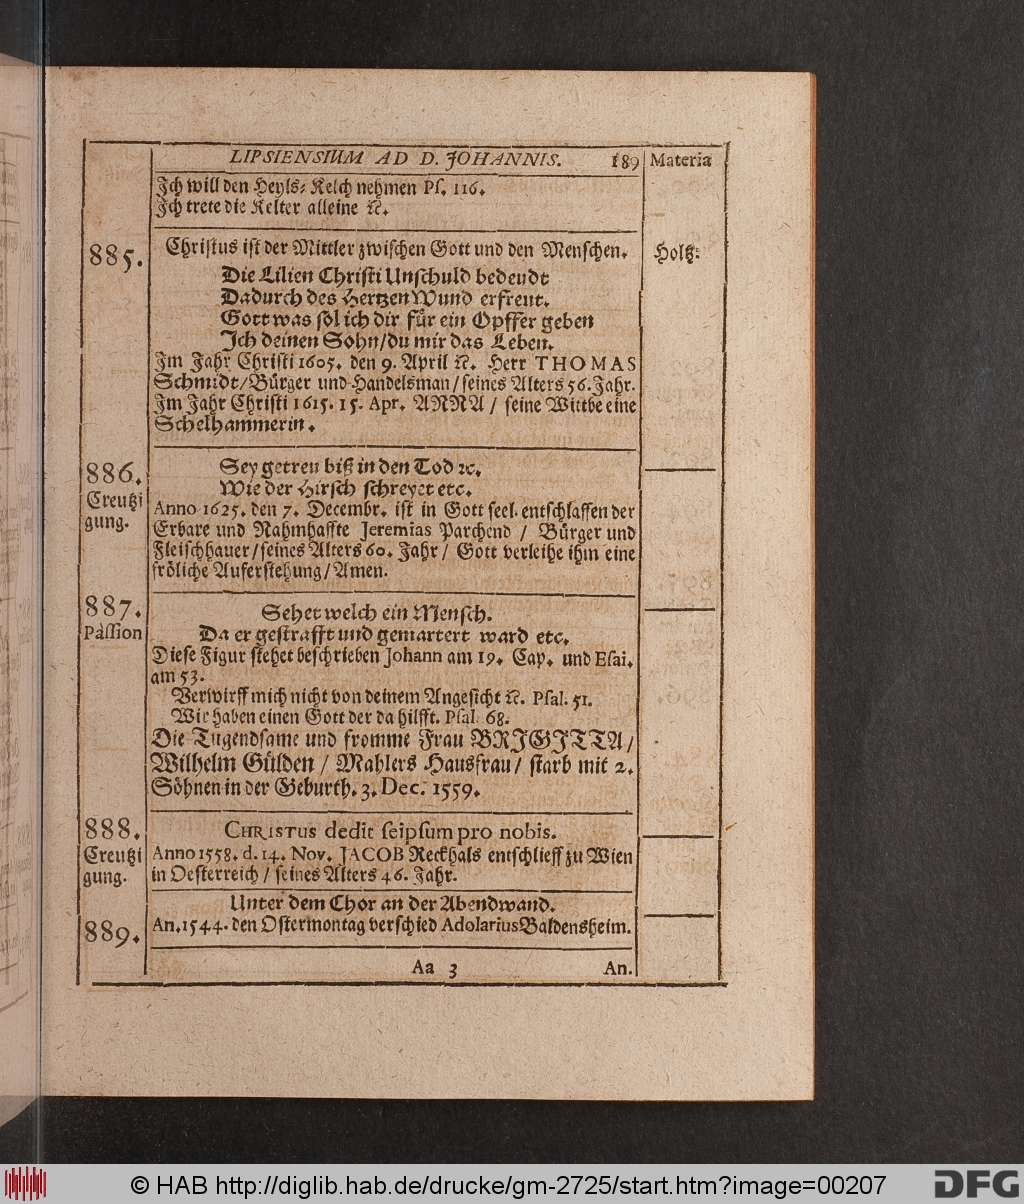 LIPSIENSIUM AD D. JOHANNIS. 189 Materia
Ich will den Heyls-Kelch nehmen Ps. 116.
Ich trete die Kelter alleine ꝛc.
885. Christus ist der Mittler zwischen Gott und den Menschen. Holtz-
Die Lilien Christi Unschuld bedeudt
Dadurch des Hertzen Wund erfreut.
Gott was sol ich dir für ein Opffer geben
Ich deinen Sohn/du mir das Leben.
Im Jahr Christi 1605. den 9. April ꝛc. Herr THOMAS
Schmidt/Bürger und Handelsman/seines Alters 56. Jahr.
Im Jahr Christi 1615. 15. Apr. ANNA / seine Wittbe eine
Schelhammerin.
886. Sey getreu biß in den Tod ꝛc.
Creutzi
gung.
Wie der Hirsch schreyet etc.
Anno 1625. den 7. Decembr. ist in Gott seel. entschlaffen der
Erbare und Nahmhaffte Jeremias Parchend / Bürger und
Fleischhauer/seines Alters 60. Jahr/ Gott verleihe ihm eine
fröliche Auferstehung/Amen.
887. Sehet welch ein Mensch.
Passion Da er gestrafft und gemartert ward etc.
Diese Figur stehet beschrieben Johann am 19. Cap. und Esai.
am 53.
Verwirff mich nicht von deinem Angesicht ꝛc. Psal. 51.
Wir haben einen Gott der da hilfft. Psal. 68.
Die Tugendsame und fromme Frau BRIGITTA/
Wilhelm Gülden / Mahlers Hausfrau/ starb mit 2.
Söhnen in der Geburth. 3. Dec. 1559.
888. CHRISTUS dedit seipsum pro nobis.
Creutzi Anno 1558. d. 14. Nov. JACOB Reckhals entschlieff zu Wien
gung. in Oesterreich / seines Alters 46. Jahr.
Unter dem Chor an der Abendwand.
889. An. 1544. den Ostermontag verschied Adolarius Baldensheim.
Aa 3 An.
© HAB http://diglib.hab.de/drucke/gm-2725/start.htm?image=00207 DFG